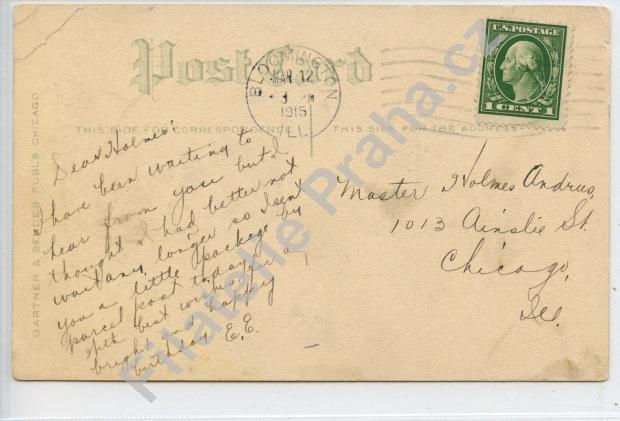 Post Card
U.S. POSTAGE
1 CENT 1
BLOOMINGTON
MAR 12
3 M
1915
ILL.
THIS SIDE FOR CORRESPONDENCE
THIS SIDE FOR THE ADDRESS
GARTNER & BENDER PUBLS CHICAGO
Dear Holmes:
have been waiting to
hear from you but I
thought I had better not
wait any longer so I sent
you a little package by
parcel post today.
With best wishes for a
bright and happy
birthday E.E.
Master Holmes Andrus,
1013 Ainslie St.
Chicago,
Ill.
Filatelie Praha.cz